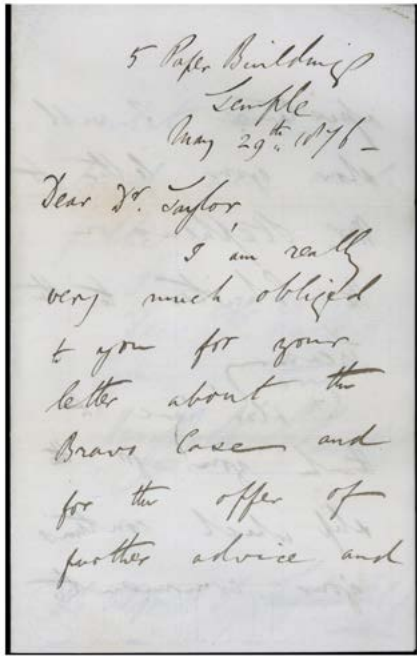 5 Paper Buildings
Temple
May 29th 1876 –
Dear Dr. Taylor,
I am really
very much obliged
to you for your
letter about the
Bravo Case and
for the offer of
further advice and